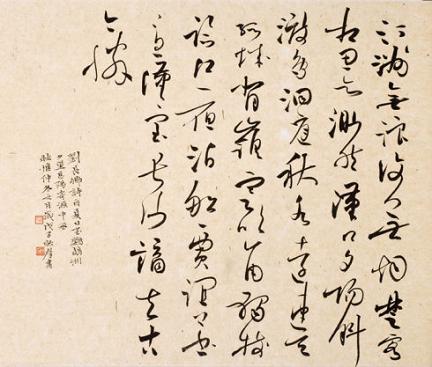 汀洲無浪復無烟楚客
相思益渺然漢口夕陽斜
渡鳥洞庭秋水遠連天
孤城背嶺寒吹角獨戍
臨江夜泊船賈誼上書
憂漢室長沙謫去古
今憐
劉長卿詩自夏口至鸚鵡洲
夕望岳陽寄源中丞
仲冬之月歲戊子